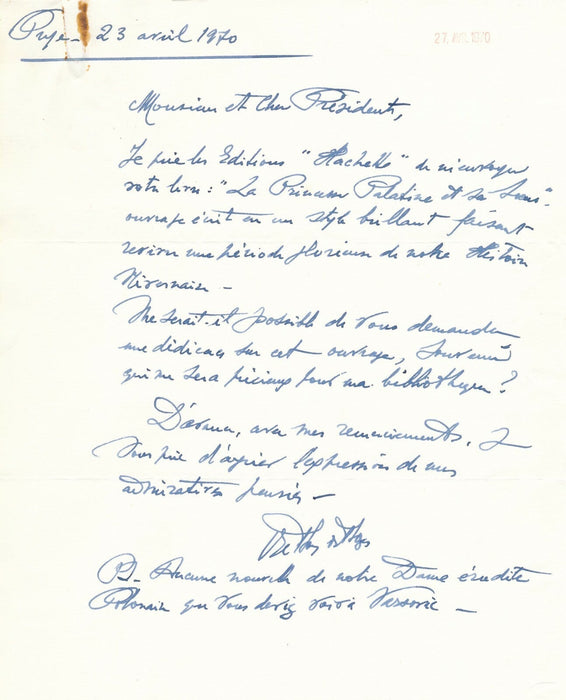 23 avril 1970
27 AVR 1970
Monsieur et Cher Président,
Je prie les Editions "Hachette" de m'envoyer
votre livre : "La Princesse Palatine et sa Soeur"
ouvrage écrit en un style brillant faisant
revivre une période glorieuse de notre Histoire
Nivernaise -
Me serait-il possible de vous demander
une dédicace sur cet ouvrage, souvenir
qui me sera précieux pour ma bibliothèque ?
D'avance, avec mes remerciements, Je
Vous prie d'agréer l'expression de mes
admiratives pensées -
PS - Aucune nouvelle de notre Dame érudite
Polonaise que Vous deviez voir à Varsovie -